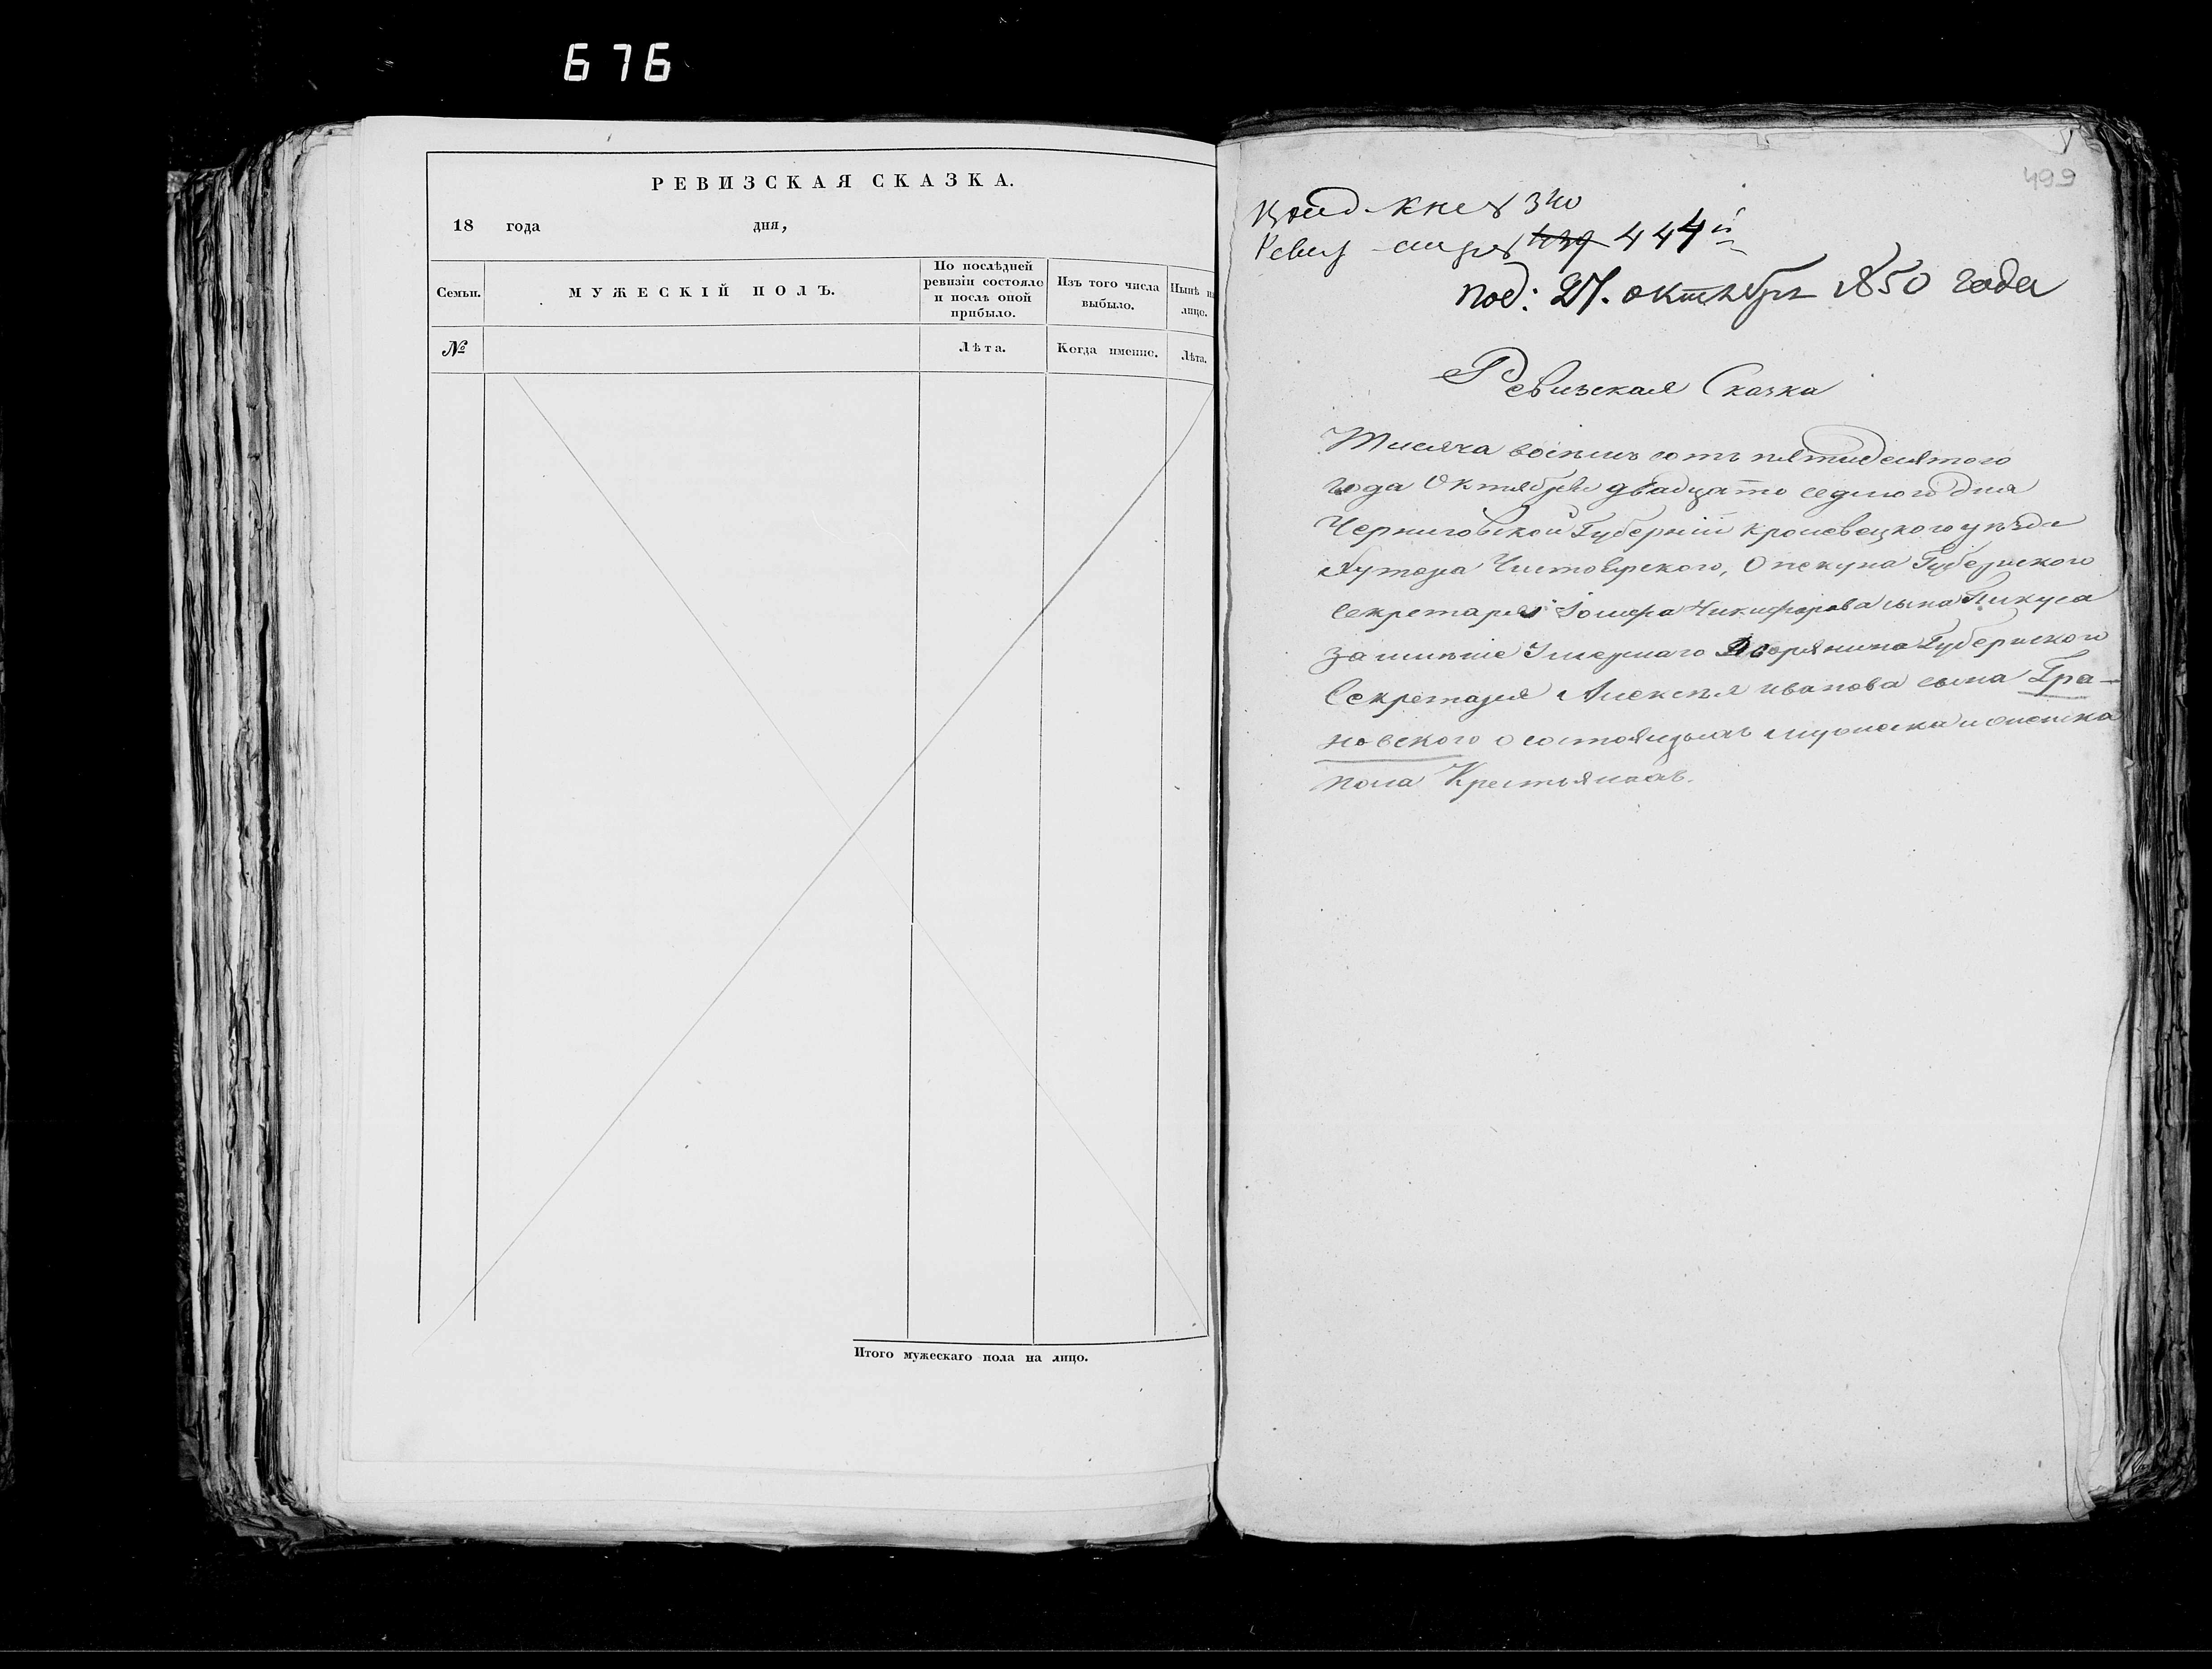 676
РЕВИЗСКАЯ СКАЗКА.
18 года дня,
Семьи.
МУЖЕСКІЙ ПОЛЪ.
По послѣдней
ревизіи состояло
и послѣ оной
прибыло.
Изъ того числа
выбыло.
Нынѣ на
лицо.
№
Лѣта.
Когда именно.
Лѣта.
Итого мужескаго пола на лицо.
499
340
Ревиз 444й
под: 27. октября 1850 года
Ревизская Сказка
Тысяча восемь сотъ пятидесятого
года Октября двадцать седмого дня
Черниговской Губерніи Кролевецкого уезда
Хутора Опекуна Губернского
Секретаря Никифорова сына
за имѣніе Умершаго Дворянина Губернского
Секретаря Алексѣя иванова сына Гра-
новского о состоящихъ мужеска и женска
пола Крестьянахъ.